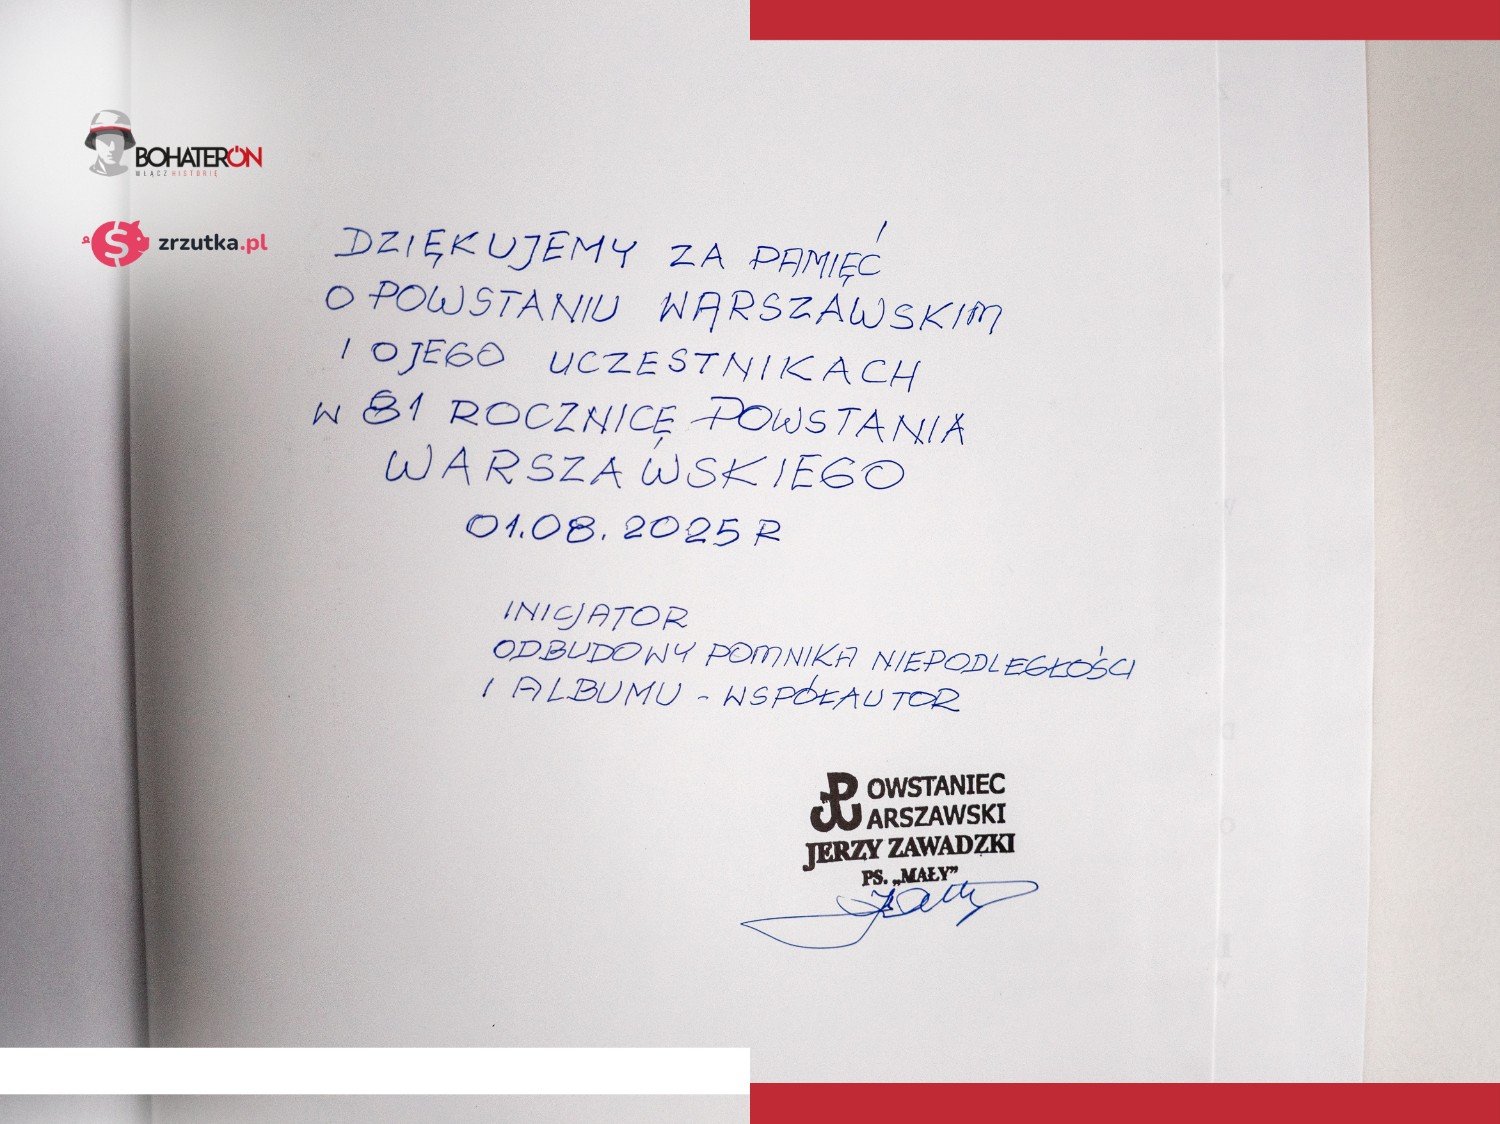 BOHATERON
WŁĄCZ HISTORIĘ
zrzutka.pl
DZIĘKUJEMY ZA PAMIĘĆ
O POWSTANIU WARSZAWSKIM
I O JEGO UCZESTNIKACH
W 81 ROCZNICĘ POWSTANIA
WARSZAWSKIEGO
01.08.2025 R
INICJATOR
ODBUDOWY POMNIKA NIEPODLEGŁOŚCI
I ALBUMU - WSPÓŁAUTOR
POWSTANIEC
WARSZAWSKI
JERZY ZAWADZKI
PS. „MAŁY”